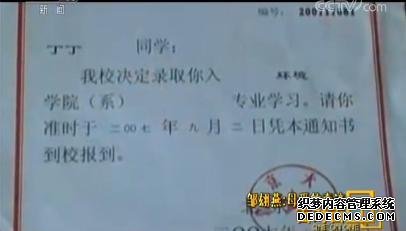 新闻
编号:
丁丁 同学:
我校决定录取你入 环境
学院(系) 专业学习。请你
准时于 二00七 年 九 月 二 日凭本通知书
到校报到。
邹翃燕:母
织梦内容管理系统
DEDECMS.COM